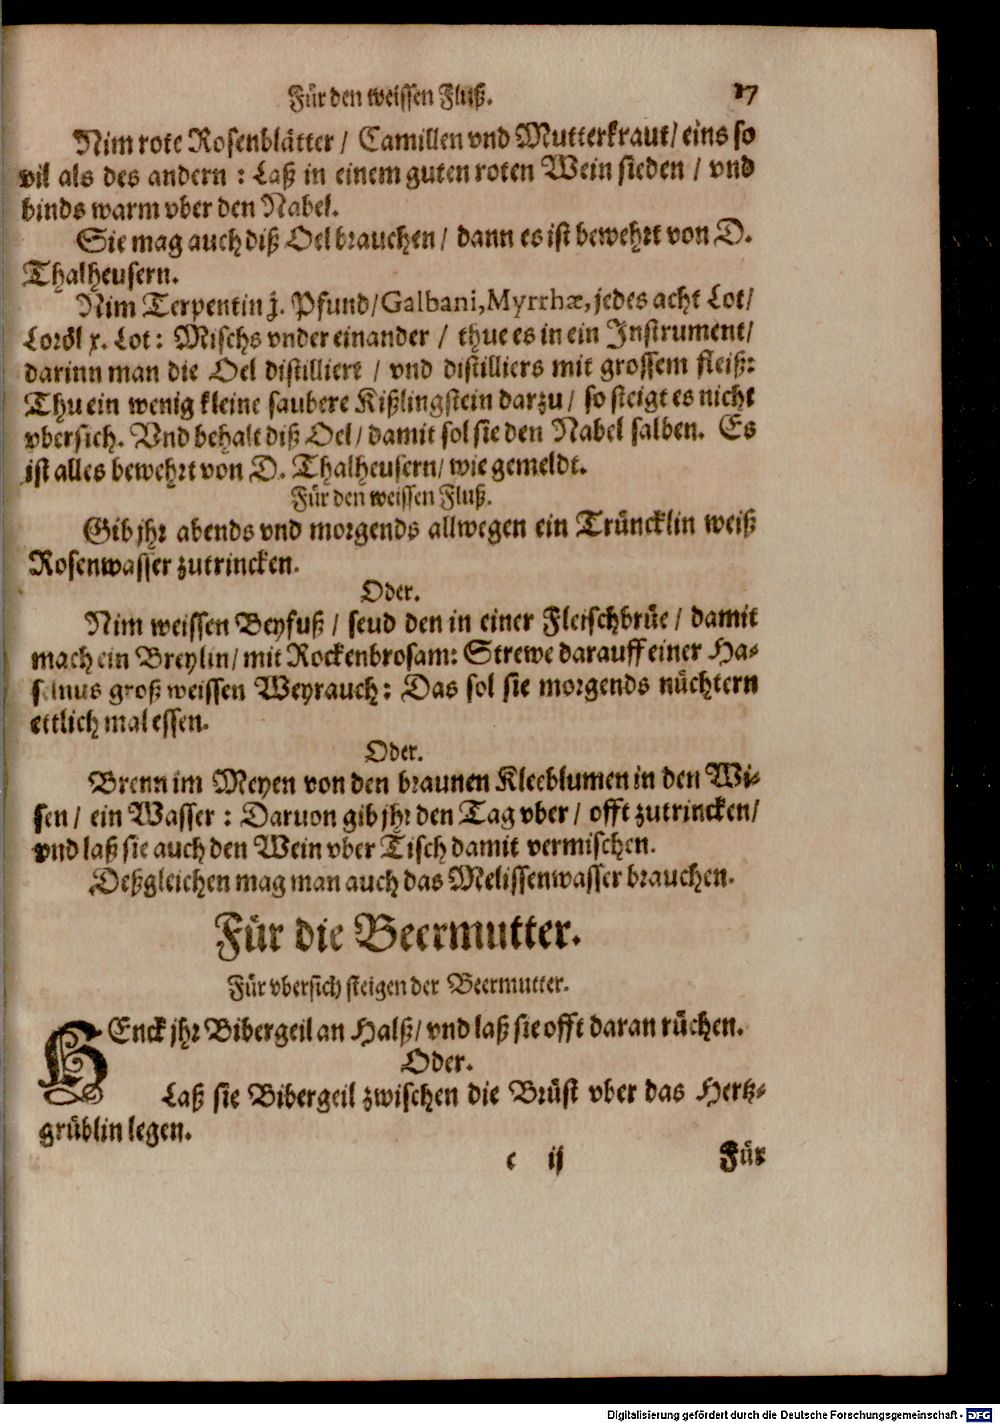 Für den weissen Fluß. 17
Nim rote Rosenblätter / Camillen vnd Mutterkraut / eins so
vil als des andern : Laß in einem guten roten Wein sieden / vnd
binds warm vber den Nabel.
Sie mag auch diß Oel brauchen / dann es ist bewehrt von D.
Thalheusern.
Nim Terpentin j. Pfund / Galbani, Myrrhæ, jedes acht Lot /
Loröl x. Lot : Mischs vnder einander / thue es in ein Instrument /
darinn man die Oel distilliert / vnd distilliers mit grossem fleiß:
Thu ein wenig kleine saubere Kißlingstein darzu / so steigt es nicht
vbersich. Vnd behalt diß Oel / damit sol sie den Nabel salben. Es
ist alles bewehrt von D. Thalheusern / wie gemeldt.
Für den weissen Fluß.
Gib jhr abends vnd morgends allwegen ein Trüncklin weiß
Rosenwasser zutrincken.
Oder.
Nim weissen Beyfuß / seud den in einer Fleischbrüe / damit
mach ein Breylin / mit Rockenbrosam: Strewe darauff einer Ha-
selnus groß weissen Weyrauch : Das sol sie morgends nüchtern
ettlich mal essen.
Oder.
Brenn im Meyen von den braunen Kleeblumen in den Wi-
sen / ein Wasser : Daruon gib jhr den Tag vber / offt zutrincken /
vnd laß sie auch den Wein vber Tisch damit vermischen.
Deßgleichen mag man auch das Melissenwasser brauchen.
Für die Beermutter.
Für vbersich steigen der Beermutter.
HEnck jhr Bibergeil an Halß / vnd laß sie offt daran rüchen.
Oder.
Laß sie Bibergeil zwischen die Brüst vber das Hertz-
grüblin legen.
c ij Für
Digitalisierung gefördert durch die Deutsche Forschungsgemeinschaft - DFG